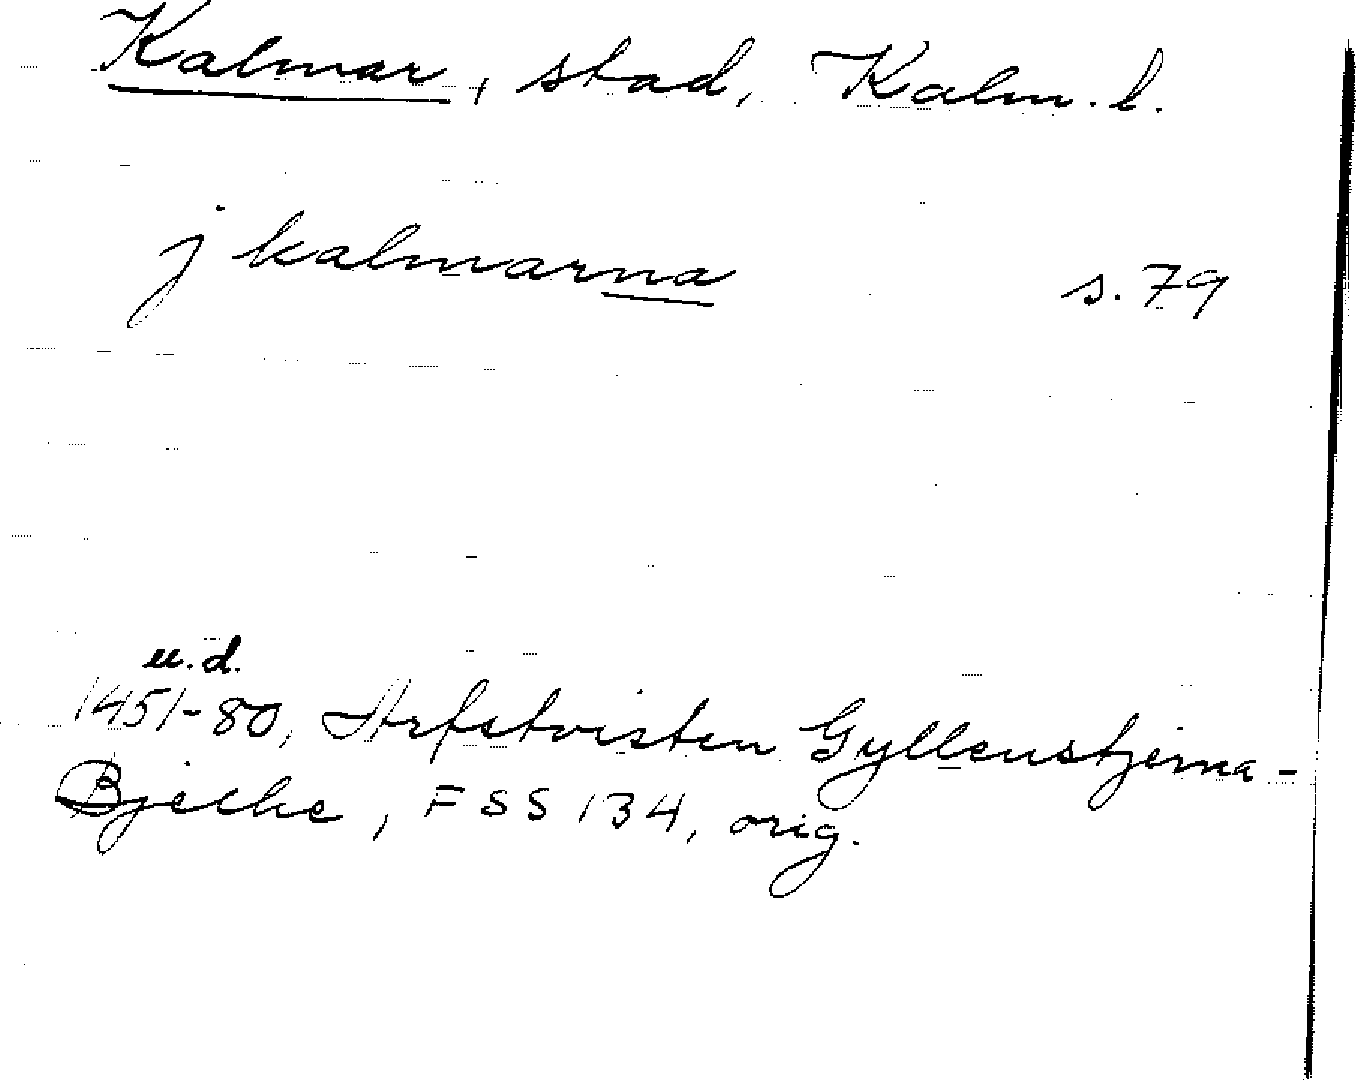 Kalmar, stad, Kalm. l.
j kalmarna s. 79
u.d.
1451-80, Arfstvisten Gyllenstjerna-
Bjelke, FSS 134, orig.